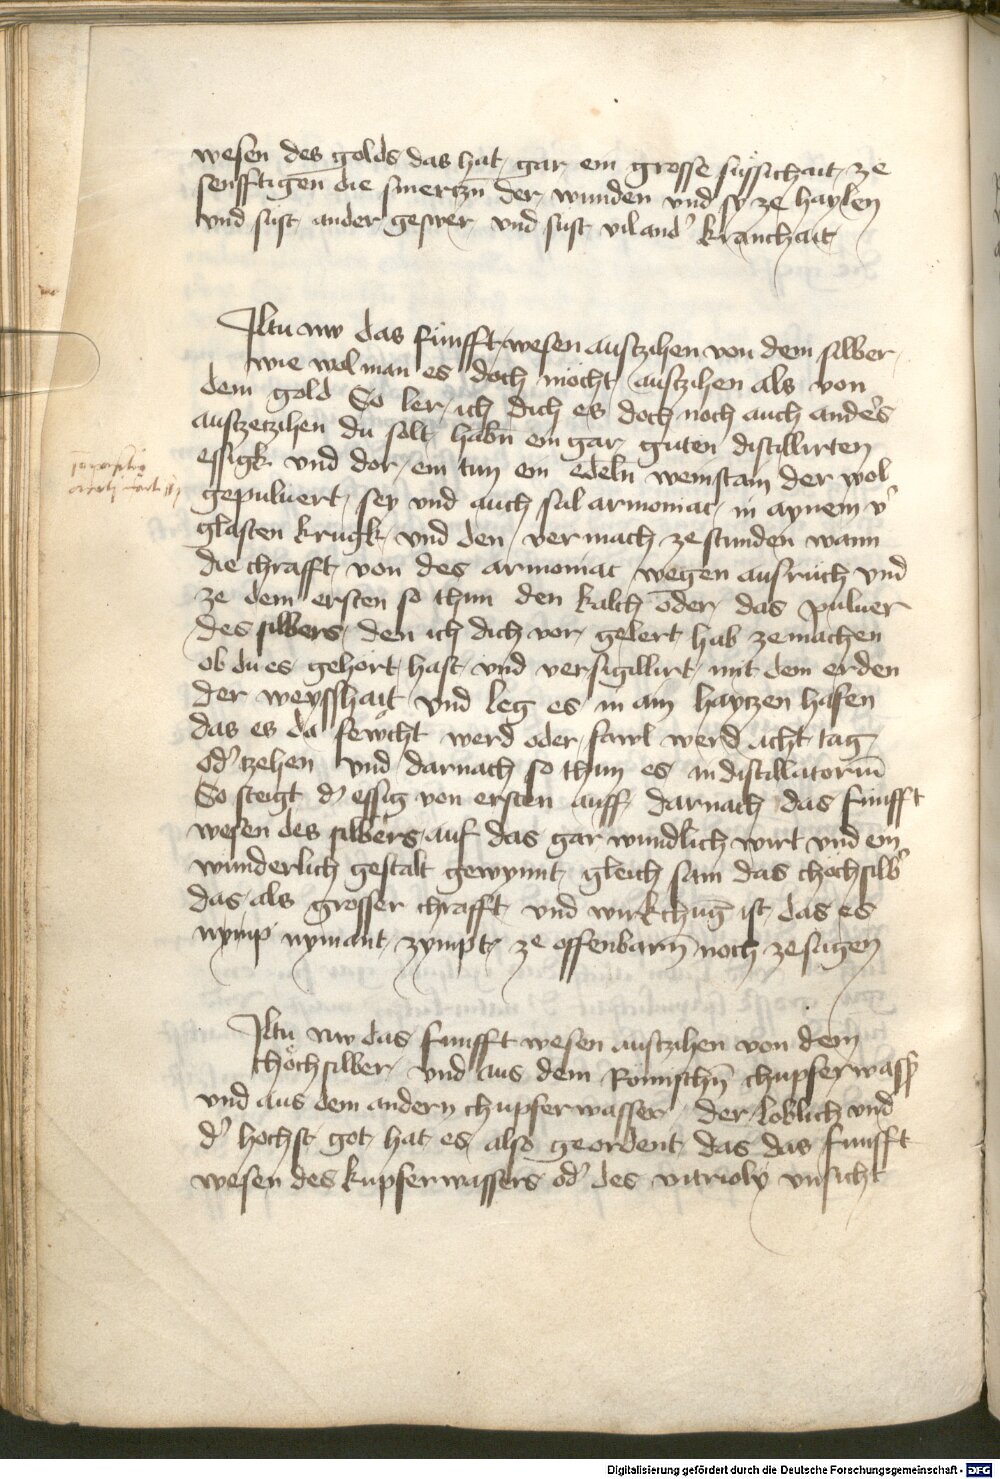 wesen des golds das hat gar ein grosse süssichait ze
senfftigen die smerczn̄ der wunden vnd sy ze haylen
vnd sust ander geswer vnd sust vil and' kranchait
Iltu nw das fünfft wesen ausczihen von dem silber
wie wol man es doch möcht ausczihen als von
dem gold So ler ich dich es doch noch auch anders
auszeczihen du solt habn̄ ein gar guten distillirten
essigk vnd dor ein tun ein edeln weinstain der wol
gepuluert sey vnd auch sal armoniac in aynem v'
glasten krugk vnd den vermach ze stunden wann
die chrafft von des armoniac wegen ausrüch vnd
ze dem ersten so thun den kalch oder das puluer
des silbers den ich dich vor gelert hab ze machen
ob du es gehort hast vnd versigillirt mit dem erden
der weysshait vnd leg es in ain hayczen hafen
das es da fewcht werd oder fawl werd acht tag
od' tzehen vnd darnach so thun es in distillatoriū
So steigt d' essig von ersten auff darnach das fünfft
wesen des silbers auf das gar wundlich wirt vnd ein
wunderlich gestalt gewynnt gleich sam das chöchsilb'
das als grosser chrafft vnd wirkchūg ist das es
nymant zympt ze offenbarn̄ noch ze sagen
Iltu nw das funfft wesen ausczihen von dem
chöchsilber vnd aus dem Römischn̄ chupferwass'
vnd aus dem andern chupferwasser der loblich vnd
d' hochst got hat es also geordent das das funfft
wesen des kupferwassers od' des vitrioly vnsicht
Digitalisierung gefördert durch die Deutsche Forschungsgemeinschaft - DFG